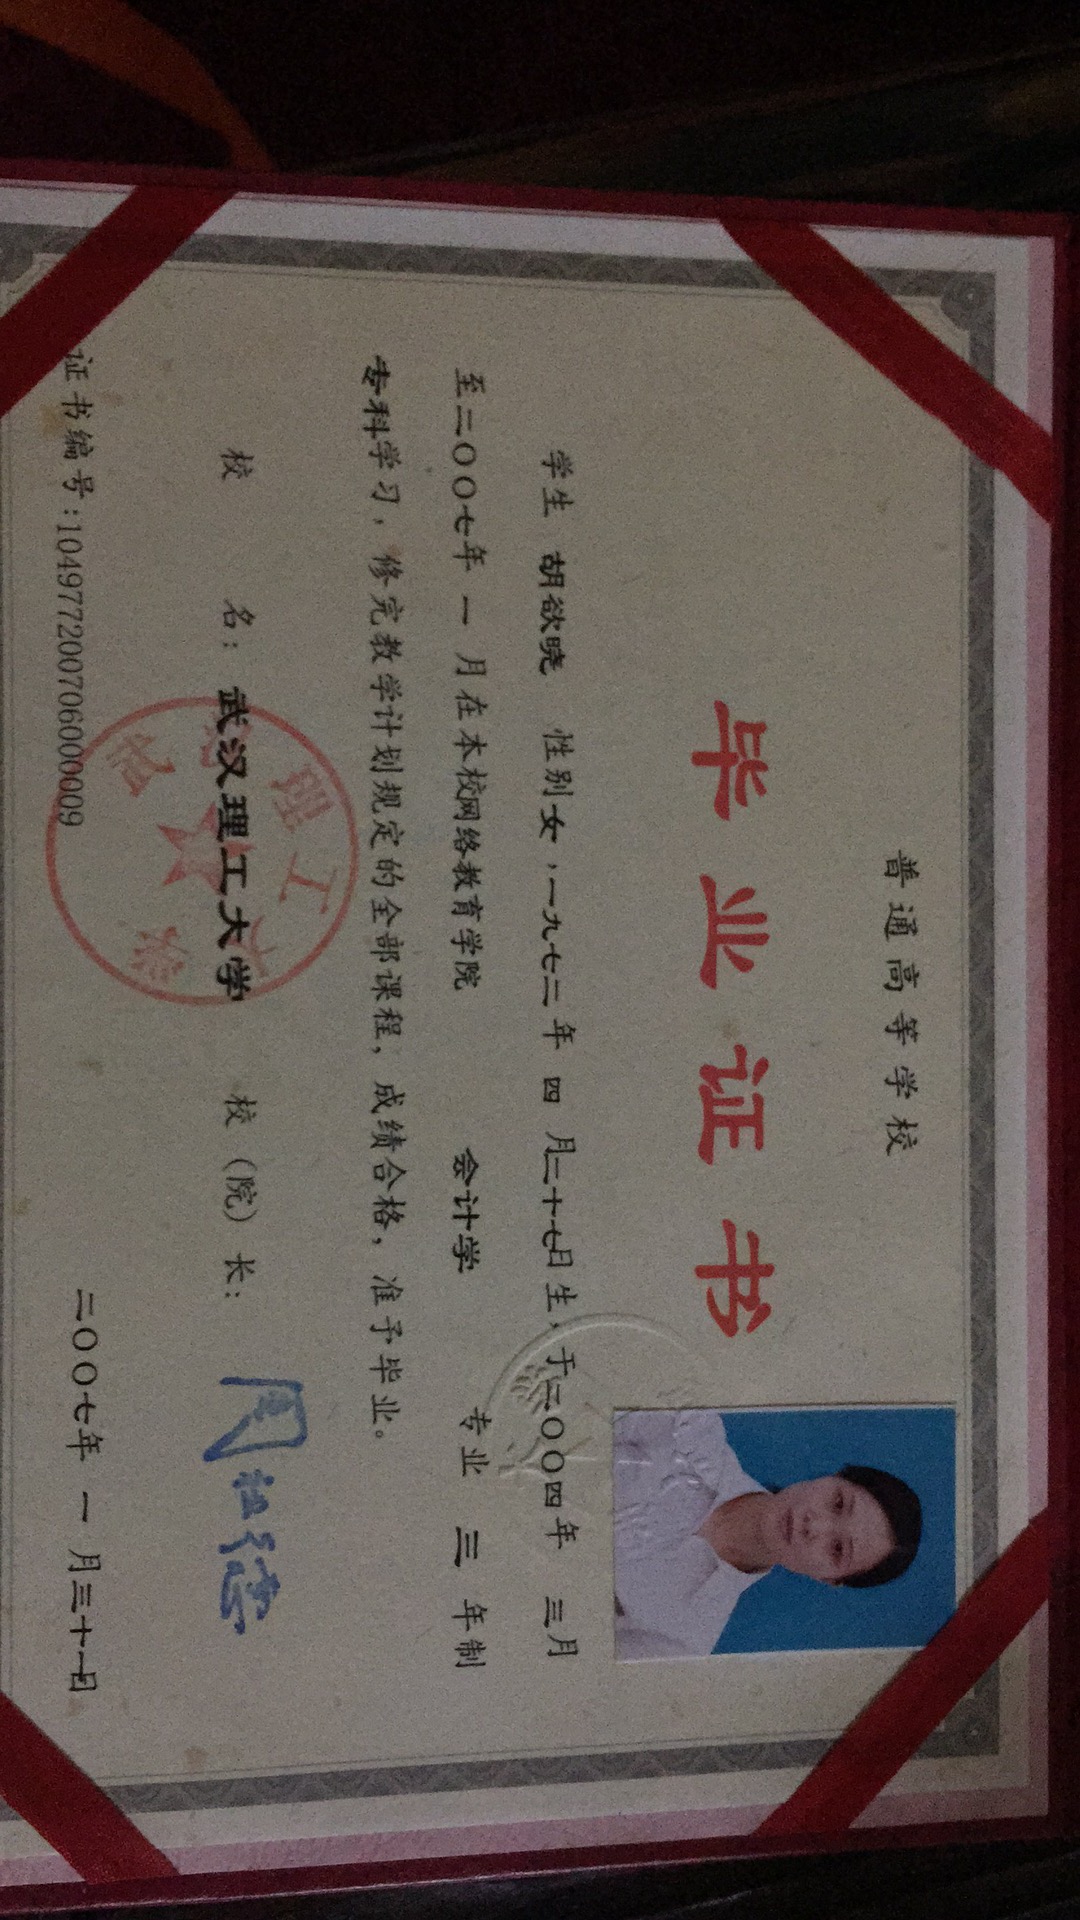 普通高等学校
毕业证书
学生 胡欲晓 性别女，一九七二年 四 月二十七日生，于二〇〇四年 三月
至二〇〇七年 一 月在本校网络教育学院 会计学 专业 三 年制
专科学习，修完教学计划规定的全部课程，成绩合格，准予毕业。
校 名：武汉理工大学 校（院）长：
证书编号：104977200706000009 二〇〇七年 一 月三十一日